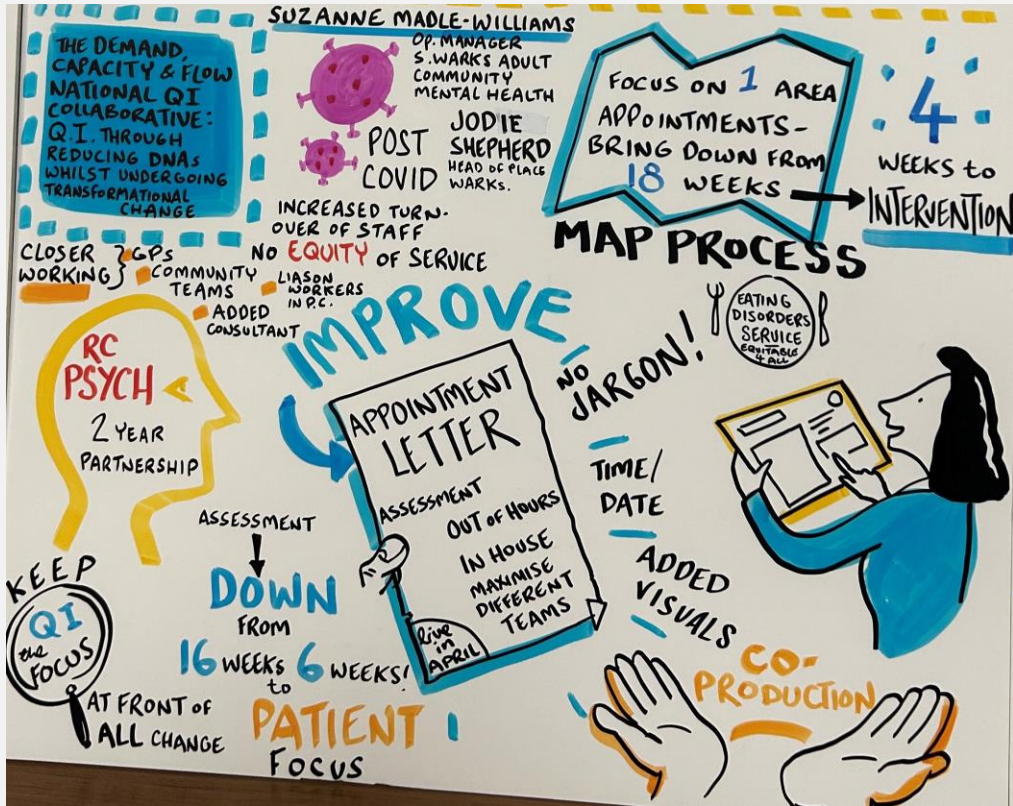 THE DEMAND,
CAPACITY & FLOW
NATIONAL QI
COLLABORATIVE:
Q.I. THROUGH
REDUCING DNAs
WHILST UNDERGOING
TRANSFORMATIONAL
CHANGE
SUZANNE MADLE-WILLIAMS
OP. MANAGER
S.WARKS ADULT
COMMUNITY
MENTAL HEALTH
POST
COVID
JODIE
SHEPHERD
HEAD OF PLACE
WARKS.
INCREASED TURN-
OVER OF STAFF
NO EQUITY OF SERVICE
FOCUS ON 1 AREA
APPOINTMENTS-
BRING DOWN FROM
18 WEEKS
4
WEEKS to
INTERVENTION
MAP PROCESS
CLOSER
WORKING
GPs
COMMUNITY
TEAMS
LIASON
WORKERS
IN P.C.
ADDED
CONSULTANT
RC
PSYCH
2 YEAR
PARTNERSHIP
IMPROVE
APPOINTMENT
LETTER
ASSESSMENT
OUT OF HOURS
IN HOUSE
MAXIMISE
DIFFERENT
TEAMS
IN
APRIL
NO
JARGON!
TIME/
DATE
ADDED
VISUALS
EATING
DISORDERS
SERVICE
EQUITABLE
4 ALL
ASSESSMENT
DOWN
FROM
16 WEEKS
to
6 WEEKS!
PATIENT
FOCUS
KEEP
QI
the
FOCUS
AT FRONT OF
ALL CHANGE
CO-
PRODUCTION